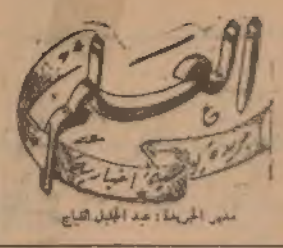 العلم
جريدة يومية إخبارية
مدير الجريدة : عبد الجليل القباج